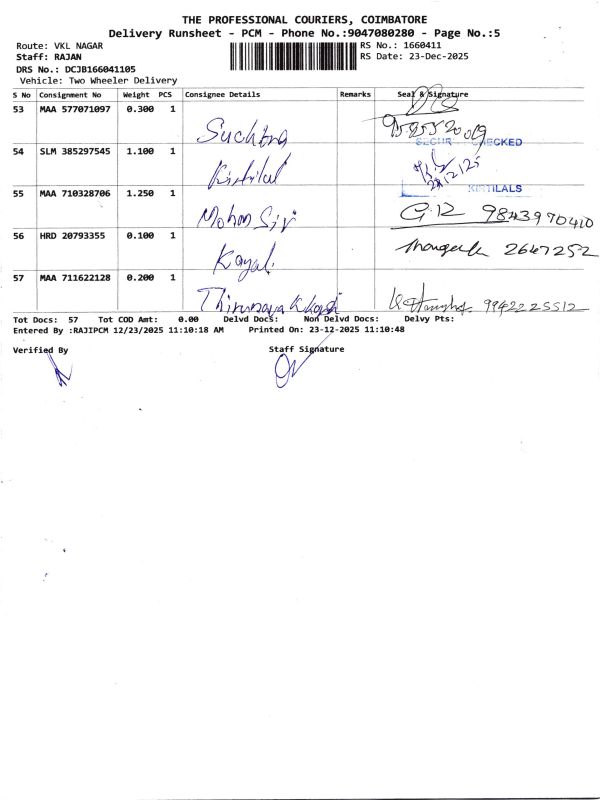 THE PROFESSIONAL COURIERS, COIMBATORE
Delivery Runsheet - PCM - Phone No.:9047080280 - Page No.:5
Route: VKL NAGAR
RS No.: 1660411
Staff: RAJAN
RS Date: 23-Dec-2025
DRS No.: DCJB166041105
Vehicle: Two Wheeler Delivery
S No Consignment No Weight PCS Consignee Details Remarks Seal & Signature
53 MAA 577071097 0.300 1 Suchitra
54 SLM 385297545 1.100 1 Kirtilal CHECKED
KIRTILALS
55 MAA 710328706 1.250 1 Mohan Sir 9843970410
56 HRD 20793355 0.100 1 Kayal 2647252
57 MAA 711622128 0.200 1 9942225512
Tot Docs: 57 Tot COD Amt: 0.00 Delvd Docs: Non Delvd Docs: Delvy Pts:
Entered By :RAJIPCM 12/23/2025 11:10:18 AM Printed On: 23-12-2025 11:10:48
Verified By Staff Signature